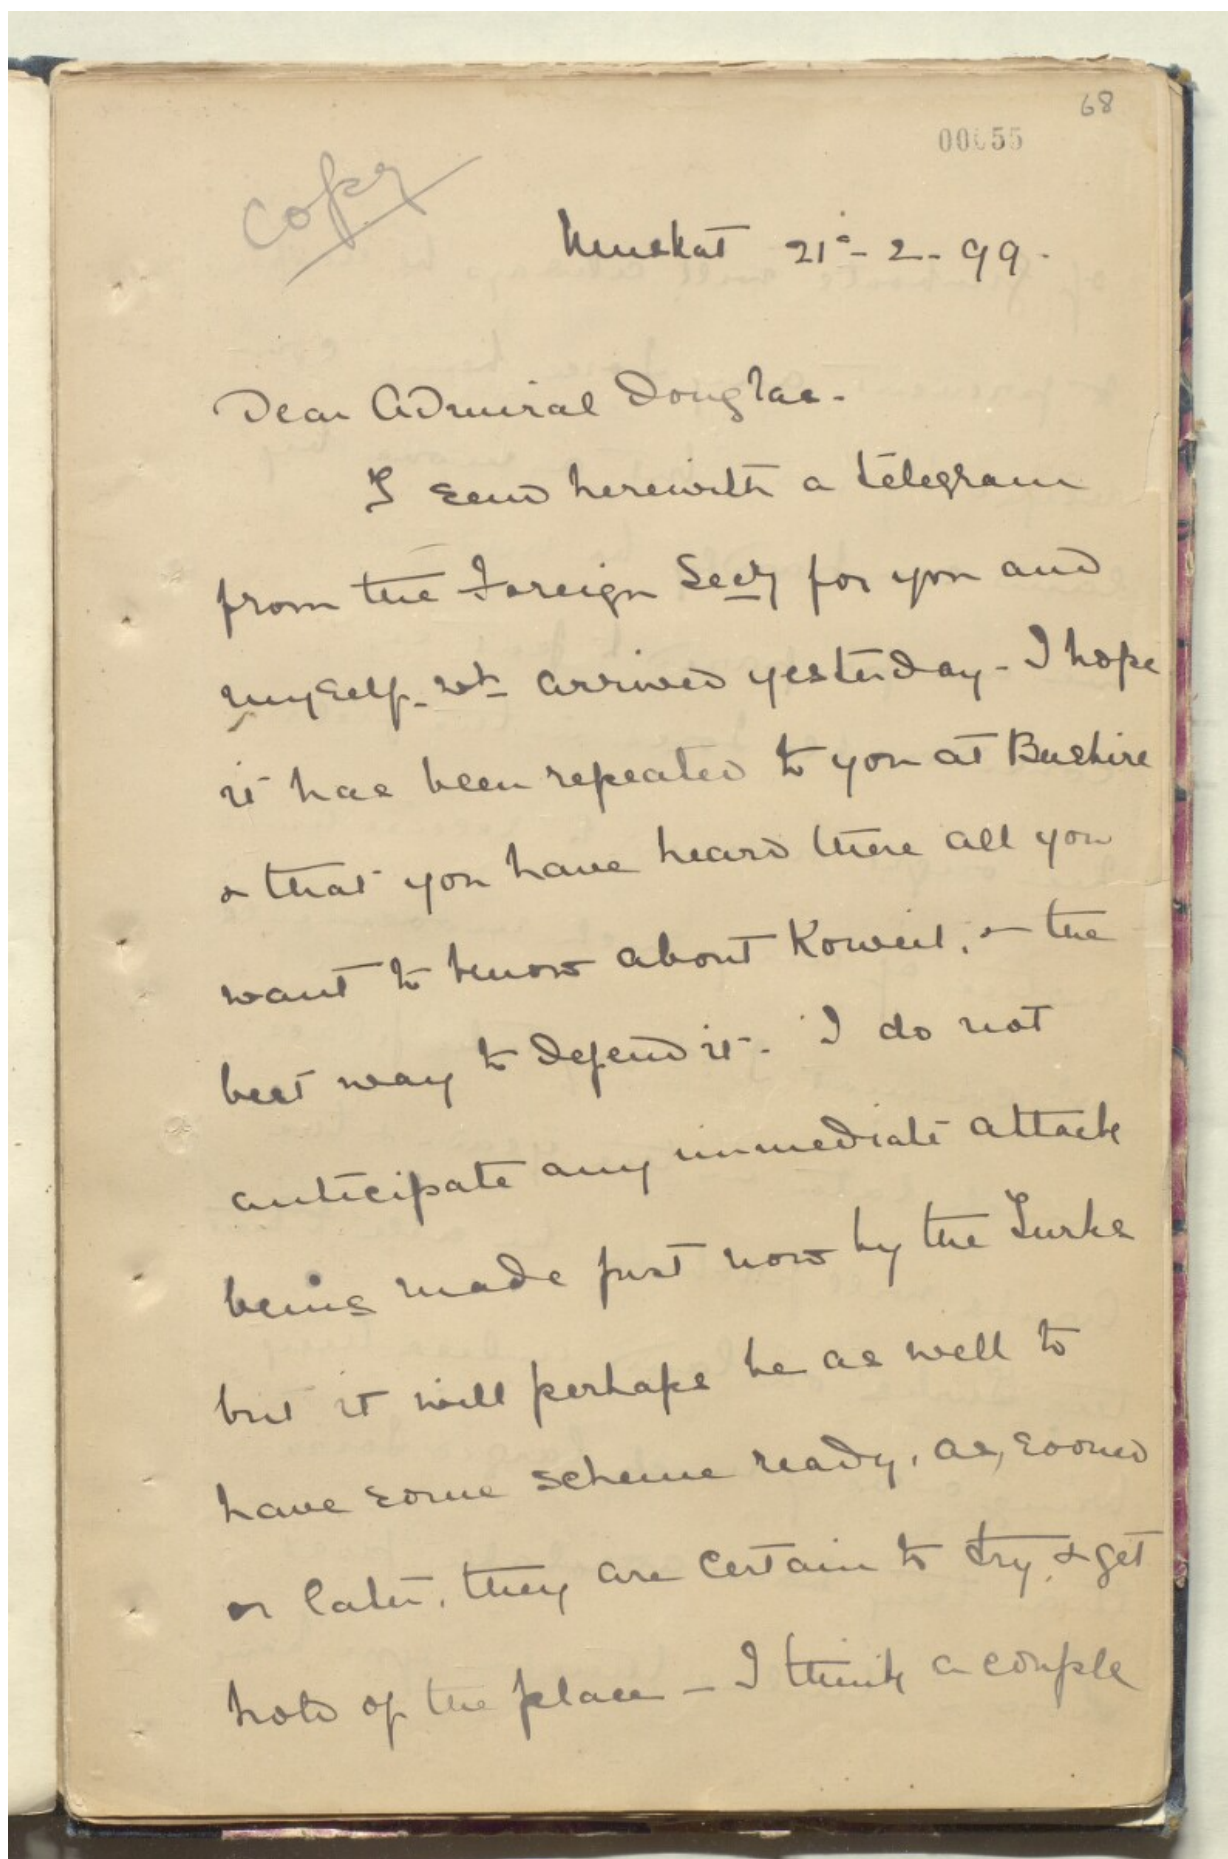 68
00055
Copy
Muskat 21st - 2 - 99.
Dear Admiral Douglas -
I send herewith a telegram
from the Foreign Secy for you and
myself - wh arrived yesterday - I hope
it has been repeated to you at Bushire
& that you have heard there all you
want to know about Koweit, & the
best way to defend it. I do not
anticipate any immediate attack
being made just now by the Turks
but it will perhaps be as well to
have some scheme ready, as, sooner
or later, they are certain to try & get
hold of the place - I think a couple